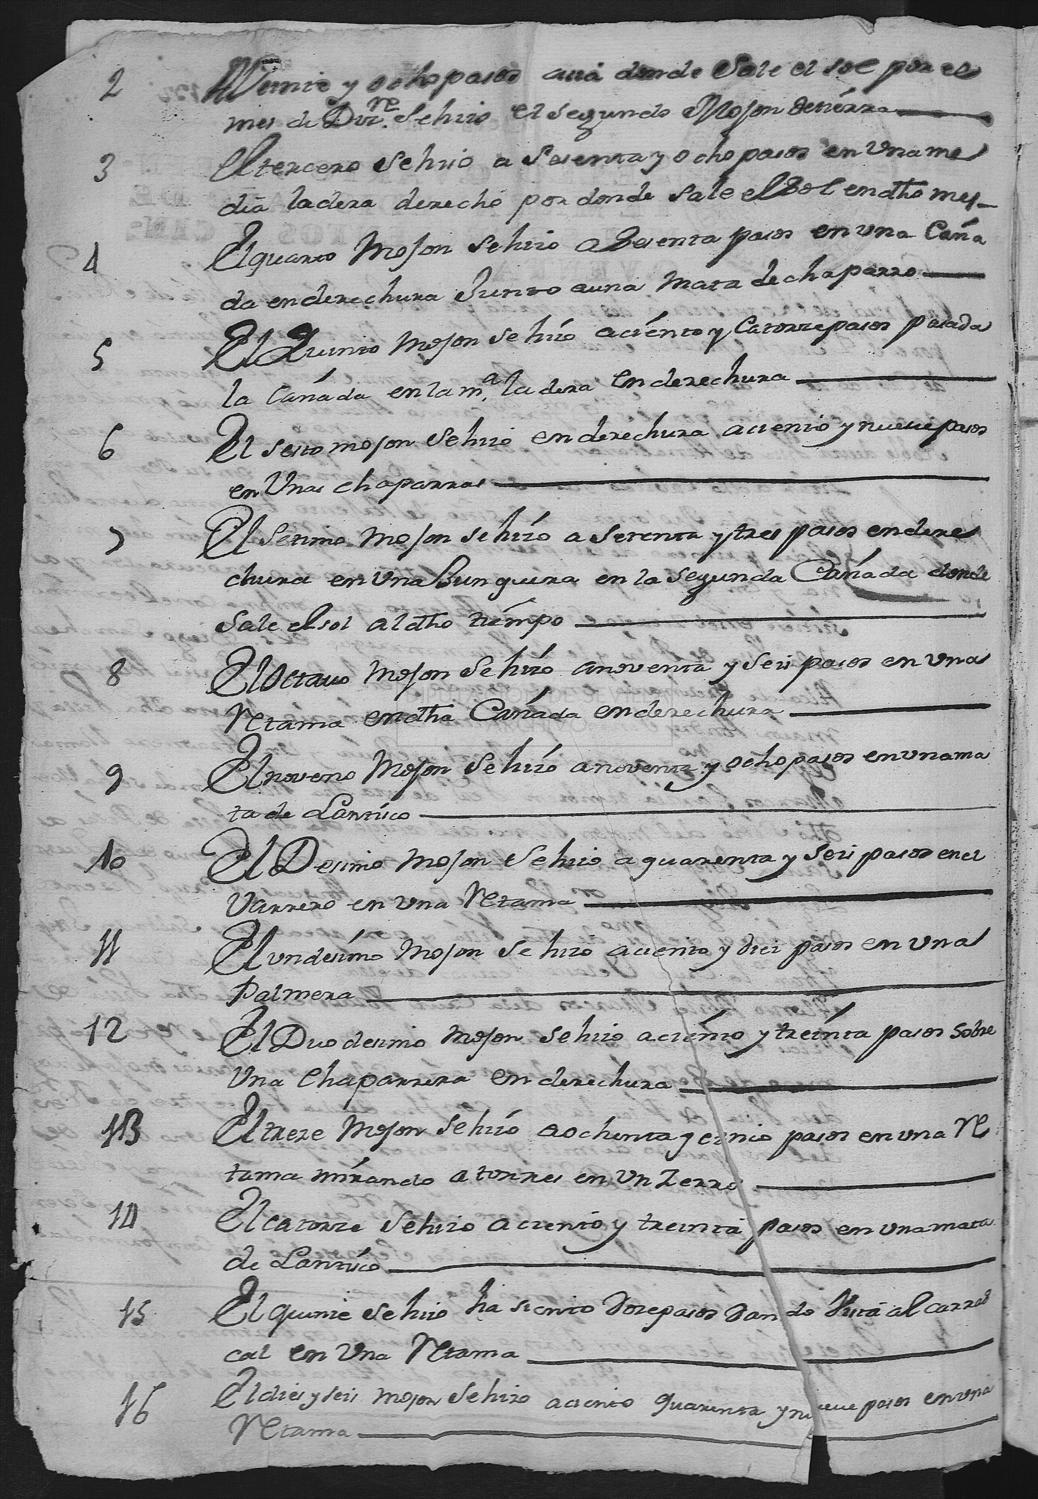 2 A Veinte y ocho pasos acia donde Sale el sol por el
mes de Dizre. Se hizo el segundo Mojon de tierra
3 El tercero Se hizo a Sesenta y ocho pasos en Una me
dia ladera derecho por donde Sale el Sol en dho mes
4 El quarto Mojon Se hizo a Sesenta pasos en una Caña
da en derechura Junto a una Mata de chaparro
5 El Quinto Mojon Se hizo a ciento y Catorze pasos pasada
la Cañada en la ma. ladera en derechura
6 El sesto mojon Se hizo en derechura a ciento y nueve pasos
en Unas chaparras
7 El Setimo Mojon Se hizo a Setenta y tres pasos en dere
chura en Una Junquera en la Segunda Cañada donde
Sale el sol al dho tiempo
8 El Octavo Mojon Se hizo a noventa y Seis pasos en Una
Retama en dha Cañada en derechura
9 El noveno Mojon Se hizo a noventa y ocho pasos en una ma
ta de Lantisco
10 El Desimo Mojon Se hizo a quarenta y Seis pasos en el
Varrero en una Retama
11 El undesimo Mojon Se hizo a ciento y diez pasos en una
Palmera
12 El Duodesimo Mojon Se hizo a ciento y treinta pasos Sobre
Una Chaparrera en derechura
13 El treze Mojon Se hizo a ochenta y cinco pasos en una Re
tama mirando a torres en Un Zerro
14 El catorze Se hizo a ciento y treinta pasos en una mata
de Lantisco
15 El quinze Se hizo ha siento Doze pasos Dando Vista al carras
cal en Una Retama
16 El dies y seis mojon Se hizo a ciento quarenta y nueve pasos en una
Retama